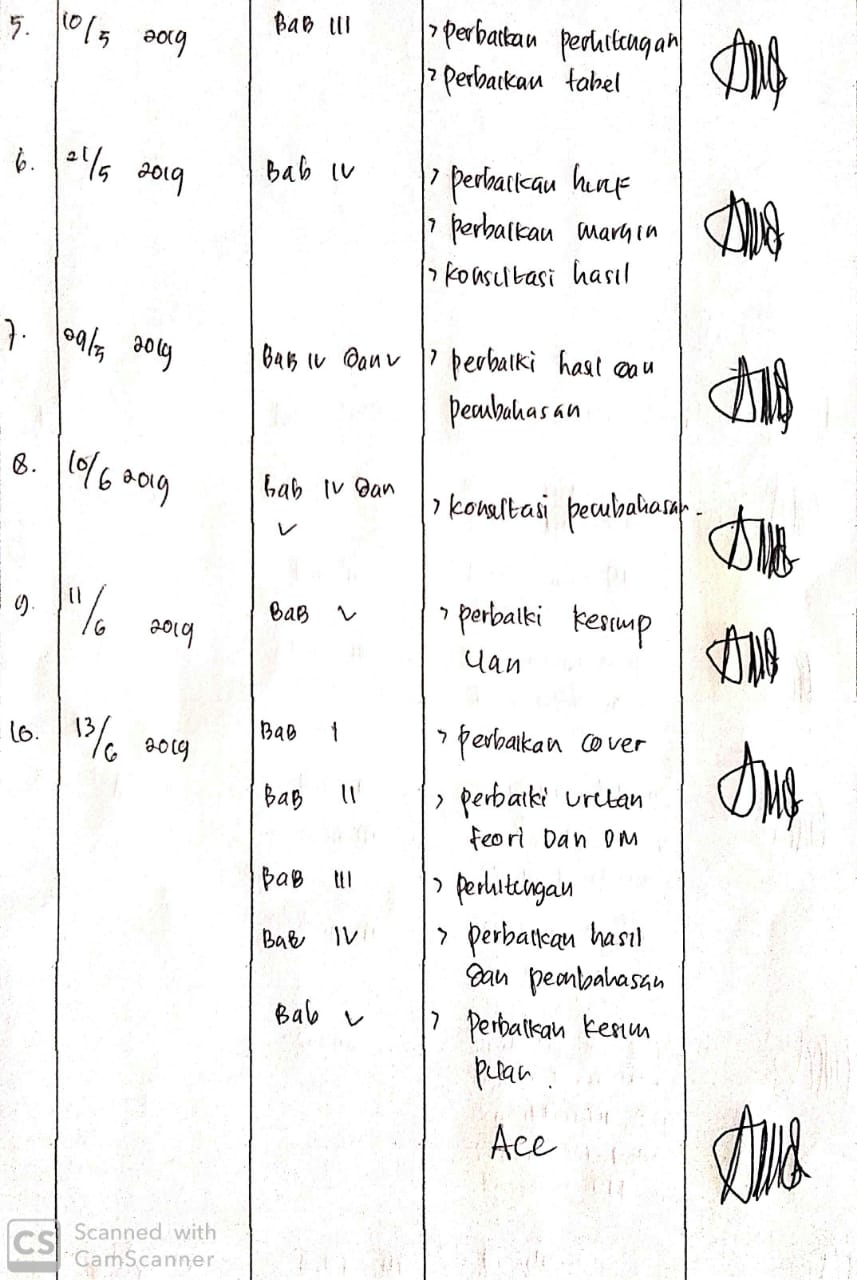 5. 10/5 2019 BAB III > perbaikan perhitungan
> perbaikan tabel
6. 21/5 2019 Bab IV > perbaikan huruf
> perbaikan margin
> konsultasi hasil
7. 29/5 2019 BAB IV Dan V > perbaiki hasil dan
pembahasan
8. 10/6 2019 Bab IV Dan > konsultasi pembahasan.
V
9. 11/6 2019 BAB V > perbaiki kesimp
ulan
10. 13/6 2019 BAB I > perbaikan cover
BAB II > perbaiki urutan
teori Dan DM
BAB III > perhitungan
BAB IV > perbaikan hasil
Dan pembahasan
Bab V > perbaikan kesim
pulan.
Acc
CS Scanned with
CamScanner